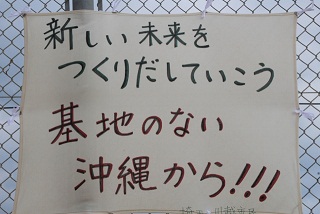 新しい未来を
つくりだしていこう
基地のない
沖縄から!!!